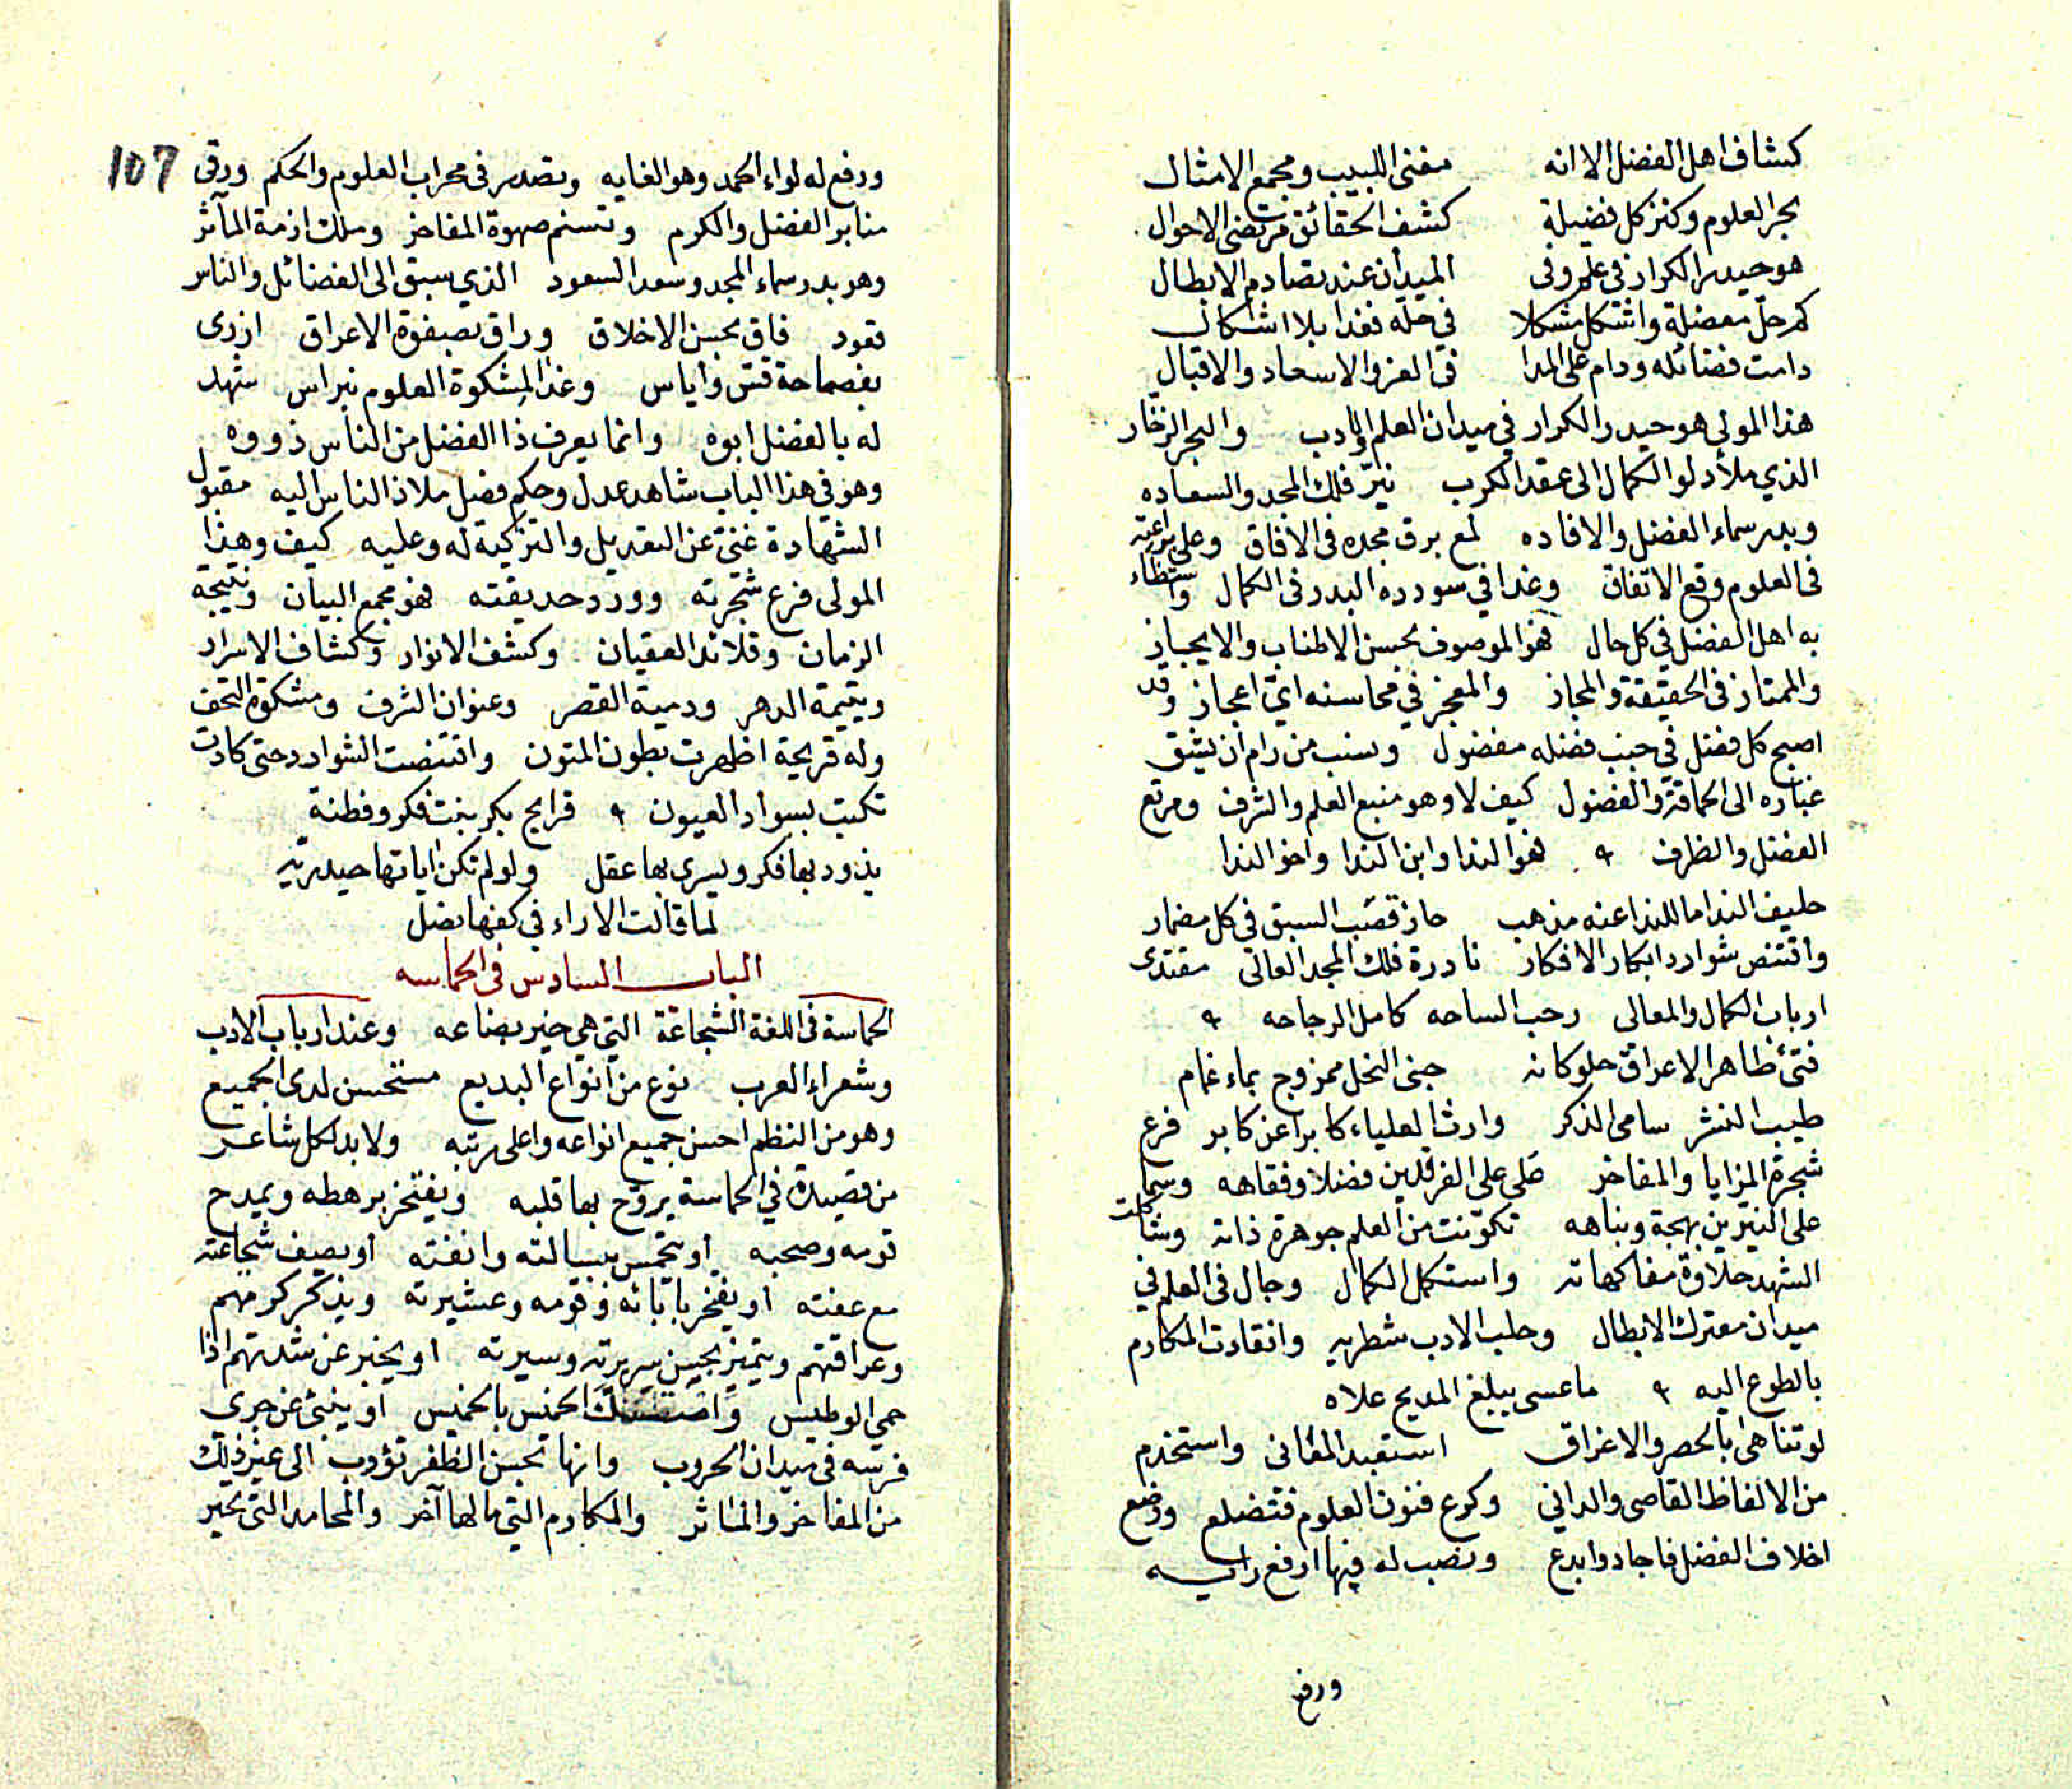 كشاف اهل الفضل الا انه مغنى اللبيب ومجمع الامثال
بحر العلوم وكنز كل فضيلة كشف الحقائق مرتضى الاحوال
هو حيدر الكرار في علم وفى الميدان عند تصادم الابطال
كم حلّ معضلة واشكل مشكلا في حله فغدا بلا اشكال
دامت فضائله ودام على المدا في العز والاسعاد والاقبال
هذا المولى هو حيدر الكرار في ميدان العلم والادب والبحر الزخار
الذي ملأ دلو الكمال الى عقد الكرب نيّر فلك المجد والسعاده
وبدر سماء الفضل والافاده لمع برق مجده في الافاق وعلى براعته
في العلوم وقع الاتفاق وغدا في سودده البدر في الكمال واستضاء
به اهل الفضل في كل حال فهو الموصوف بحسن الاطناب والايجاز
والممتاز في الحقيقة والمجاز والمعجز في محاسنه ايّ اعجاز وقد
اصبح كل فضل في جنب فضله مفضول ونسب من رام ان يشق
غباره الى الحماقة والفضول كيف لا وهو منبع العلم والشرف ومرتع
الفضل والظرف فهو الندا وابن الندا واخو الندا
حليف الندا ما للندا عنه مذهب حاز قصب السبق في كل مضمار
واقتنص شوارد ابكار الافكار نادرة فلك المجد العالى مقتدى
ارباب الكمال والمعالى رحب الساحه كامل الرجاحه
فتىً ظاهر الاعراق حلو كانه جنى النحل ممزوج بماء غمام
طيب النشر سامى الذكر وارث العلياء كابرا عن كابر فرع
شجرة المزايا والمفاخر على على الفرقدين فضلا وفقاهه وسما
على النيّرين بهجة ونباهه تكوّنت من العلم جوهرة ذاته وشاكلت
الشهد حلاوة مفاكهاته واستكمل الكمال وجال في العلم في
ميدان معترك الابطال وحلب الادب شطريه وانقادت المكارم
بالطوع اليه ما عسى يبلغ المديح علاه
لو تناهى بالحصر والاغراق استعبد المعانى واستخدم
من الالفاظ القاصى والدانى وكرع فنون العلوم فتضلع ورضع
اخلاف الفضل فاجاد وابدع ونصب له فيها ارفع رايه
ورفع
107
ورفع له لواء الحمد وهو الغايه وتصدر في محراب العلوم والحكم ورقى
منابر الفضل والكرم وتسنم صهوة المفاخر وملك ازمة المآثر
وهو بدر سماء المجد وسعد السعود الذي سبق الى الفضائل والناس
قعود فاق بحسن الاخلاق وراق بصفوة الاعراق ازرى
بفصاحة قس وأياس وغدا لمشكوة العلوم نبراس شهد
له بالفضل ابوه وانما يعرف ذا الفضل من الناس ذووه
وهو في هذا الباب شاهد عدل وحكم فصل ملاذ الناس اليه مقبول
الشهادة غنى عن التعديل والتزكية له وعليه كيف وهذا
المولى فرع شجرته وورد حديقته فهو مجمع البيان ونتيجة
الزمان وقلائد العقيان وكشف الانوار وكشاف الاسرار
ويتيمة الدهر ودمية القصر وعنوان الشرف ومشكوة التحف
وله قريحة اظهرت بطون المتون واقتنصت الشوارد حتى كادت
تكتب بسواد العيون قرايح بكر بنت فكر وفطنة
يذود بها فكر ويسرى بها عقل ولو لم تكن اياتها حيدرته
لما قالت الاراء في كفها نصل
الباب السادس في الحماسه
الحماسة في اللغة الشجاعة التي هي خير بضاعه وعند ارباب الادب
وشعراء العرب نوع من انواع البديع مستحسن لدى الجميع
وهو من النظم احسن جميع انواعه واعلى رتبه ولا بد لكل شاعر
من قصيدة في الحماسة يروّح بها قلبه ويفتخر برهطه ويمدح
قومه وصحبه او يتحمس ببسالته وانفته او يصف شجاعته
مع عفته او يفخر بابائه وقومه وعشيرته ويذكر كرمهم
وعراقتهم ويتميز بحسن سريرته وسيرته او يخبر عن شدتهم اذا
حمى الوطيس الخميس بالخميس او ينبئ عن جرى
فرسه في ميدان الحروب وانها بحسن الظفر تؤوب الى غير ذلك
من المفاخر والمأثر والمكارم التي مالها آخر والمحامد التى تحير